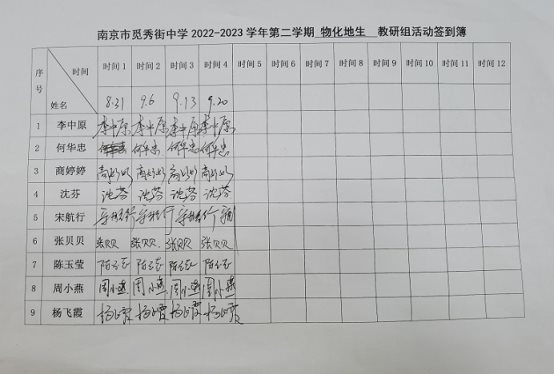 南京市觅秀街中学 2022-2023 学年第二学期 物化地生 教研组活动签到簿
序号 时间 姓名 时间 1 时间 2 时间 3 时间 4 时间 5 时间 6 时间 7 时间 8 时间 9 时间 10 时间 11 时间 12
8.31 9.6 9.13 9.20
1 李中原 李中原 李中原 李中原 李中原
2 何华忠 何华忠 何华忠 何华忠 何华忠
3 商婷婷 商婷婷 商婷婷 商婷婷 商婷婷
4 沈芬 沈芬 沈芬 沈芬 沈芬
5 宋航行
6 张贝贝 张贝贝 张贝贝 张贝贝 张贝贝
7 陈玉莹 陈玉莹 陈玉莹 陈玉莹 陈玉莹
8 周小燕 周小燕 周小燕 周小燕 周小燕
9 杨飞霞 杨飞霞 杨飞霞 杨飞霞 杨飞霞